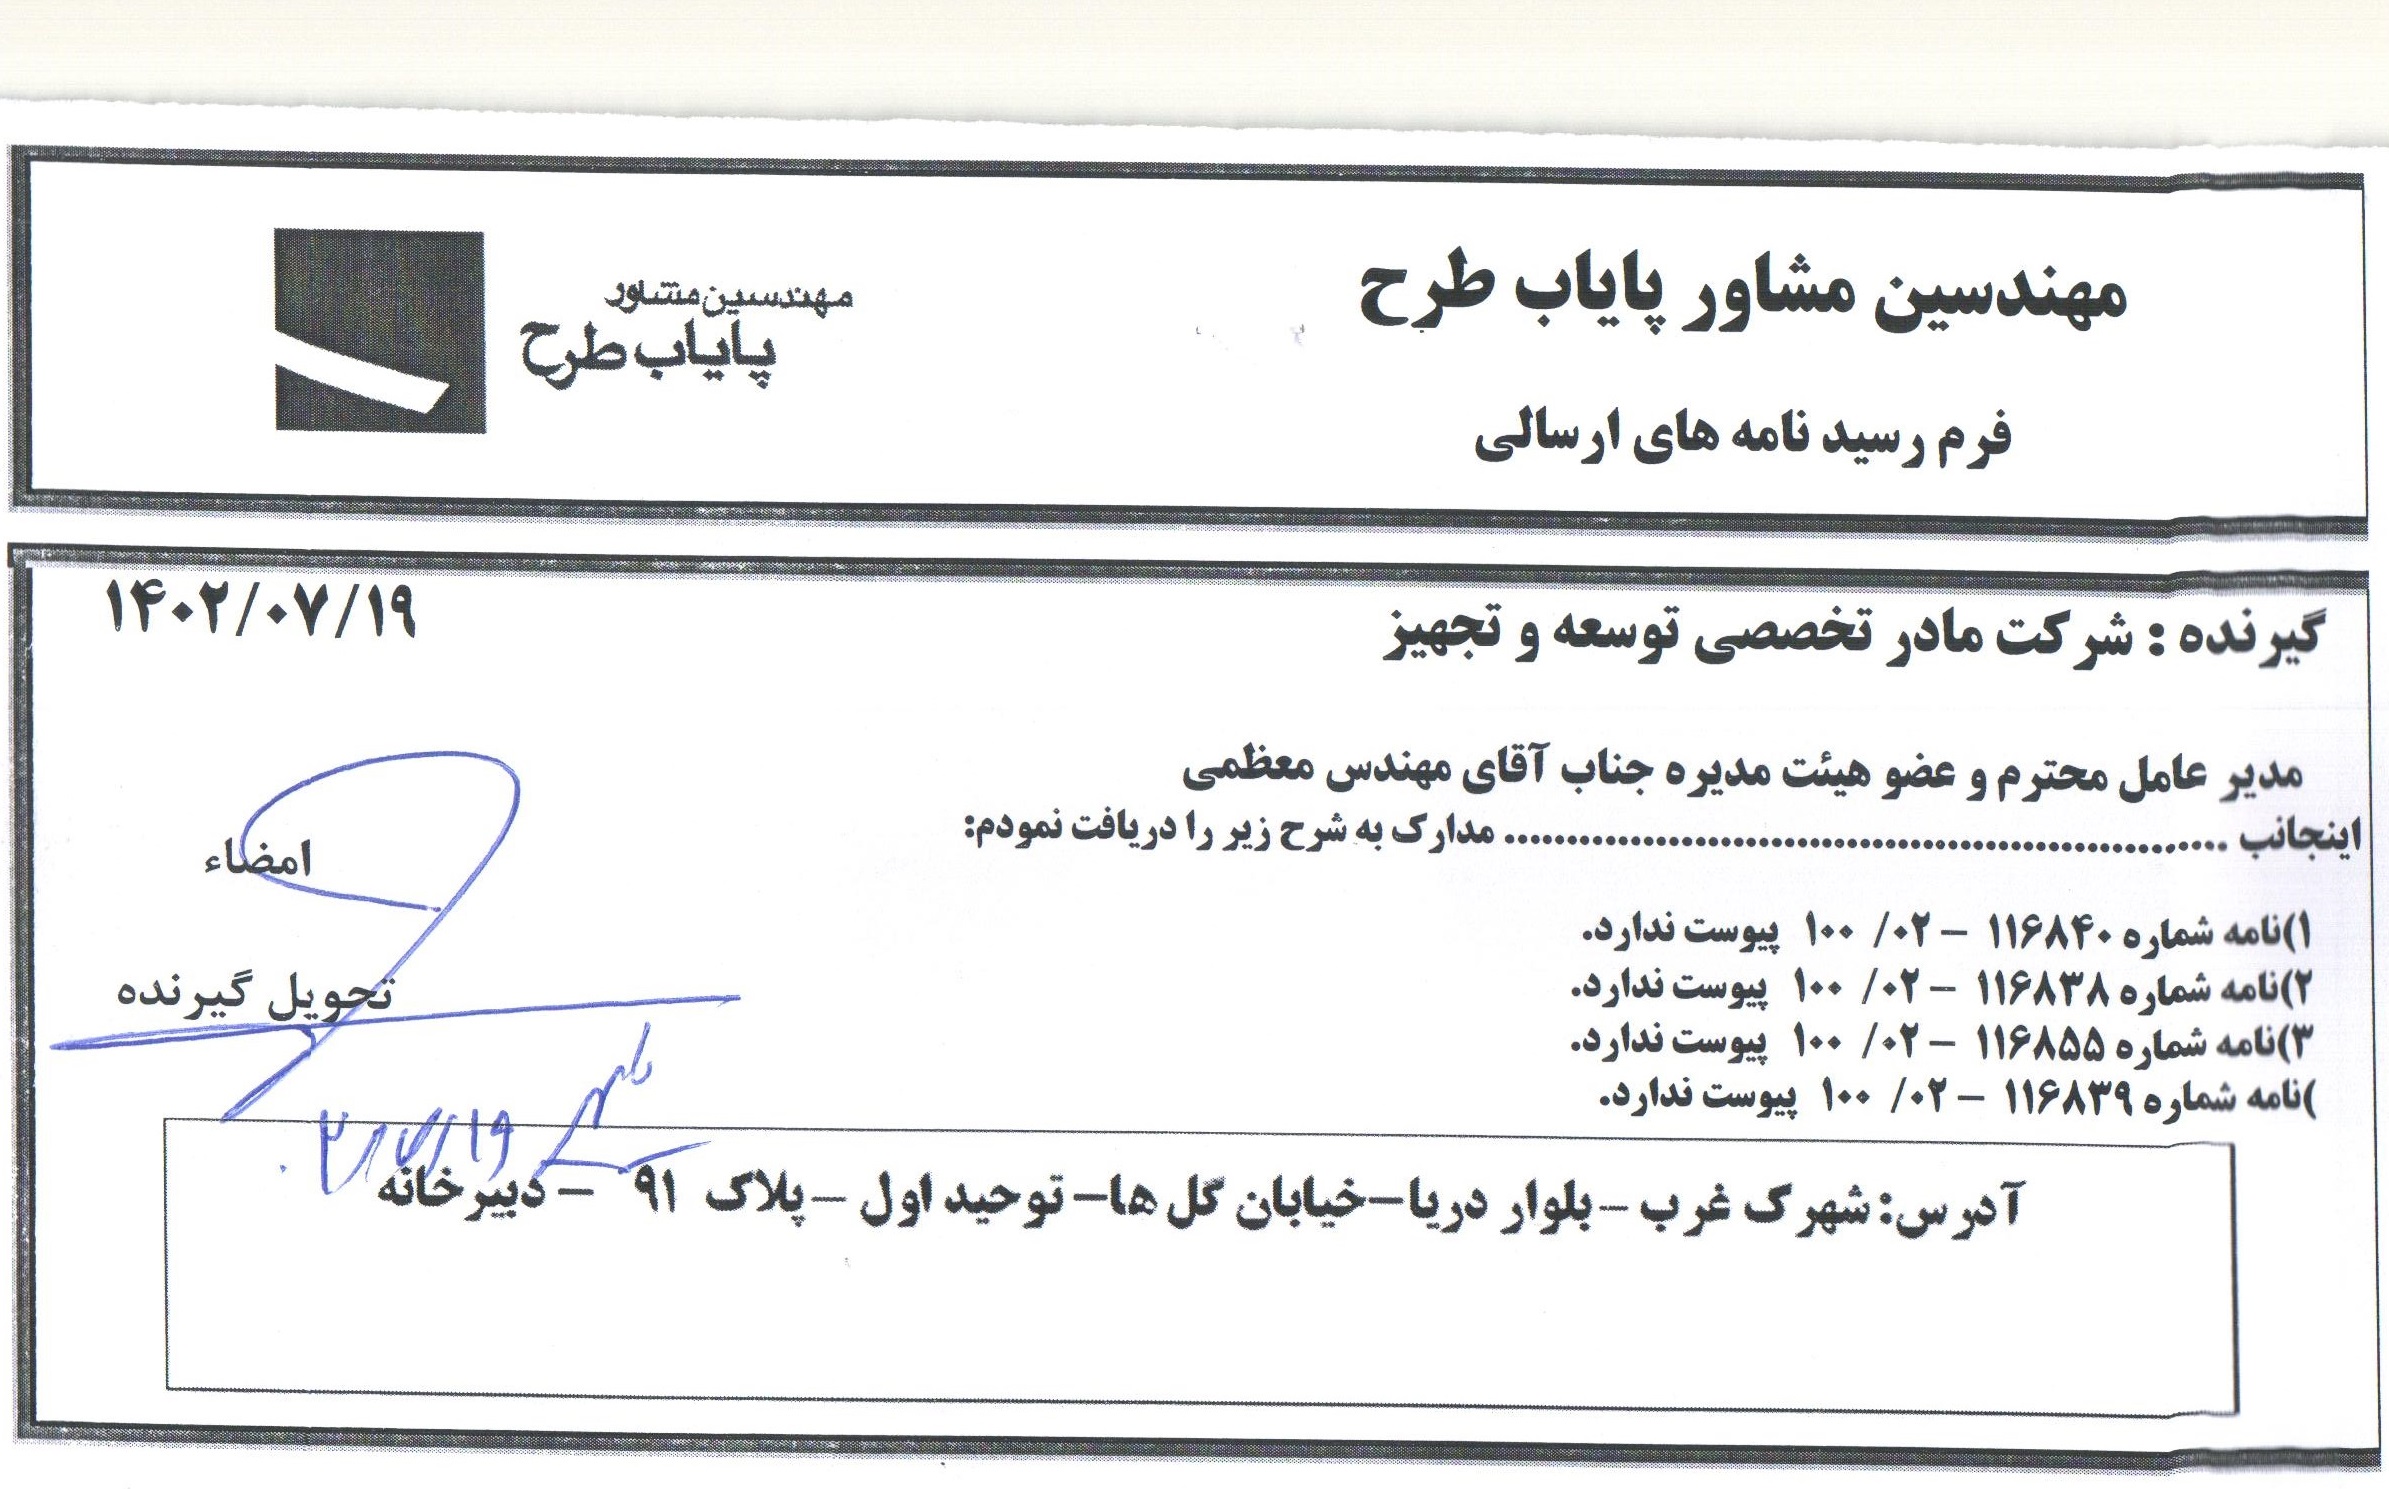 مهندسین مشاور پایاب طرح
مهندسین مشاور
پایاب طرح
فرم رسید نامه های ارسالی
گیرنده : شرکت مادر تخصصی توسعه و تجهیز
۱۴۰۲/۰۷/۱۹
مدیر عامل محترم و عضو هیئت مدیره جناب آقای مهندس معظمی
اینجانب ............................................................ مدارک به شرح زیر را دریافت نمودم:
امضاء
۱)نامه شماره ۱۱۶۸۴۰ – ۰۲/ ۱۰۰ پیوست ندارد.
۲)نامه شماره ۱۱۶۸۳۸ – ۰۲/ ۱۰۰ پیوست ندارد.
تحویل گیرنده
۳)نامه شماره ۱۱۶۸۵۵ – ۰۲/ ۱۰۰ پیوست ندارد.
)نامه شماره ۱۱۶۸۳۹ – ۰۲/ ۱۰۰ پیوست ندارد.
آدرس: شهرک غرب –بلوار دریا–خیابان گل ها– توحید اول –پلاک ۹۱ – دبیرخانه